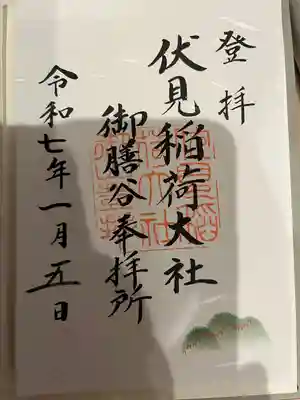 登拝
伏見稲荷大社
御膳谷奉拝所
令和七年一月五日